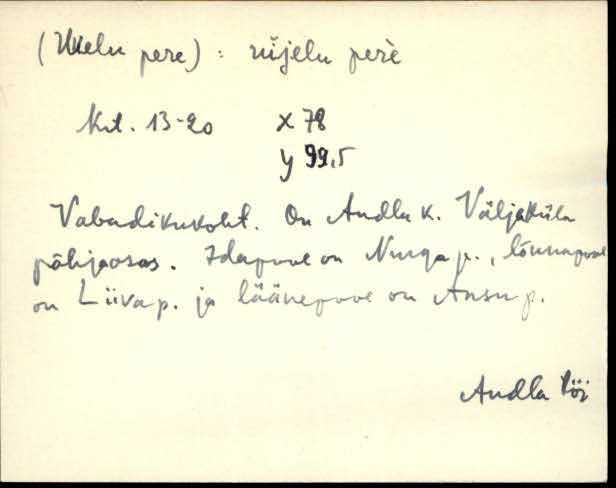 (Uuelu pere) : ũịjelu perè
Krt. 13-20 X 78
y 99,5
Vabadikukoht. On Andla k. Väljaküla
põhjaosas. Idapool on Nurga p., lõunapool
on Liiva p. ja läänepool on Ansu p.
Andla Pöi